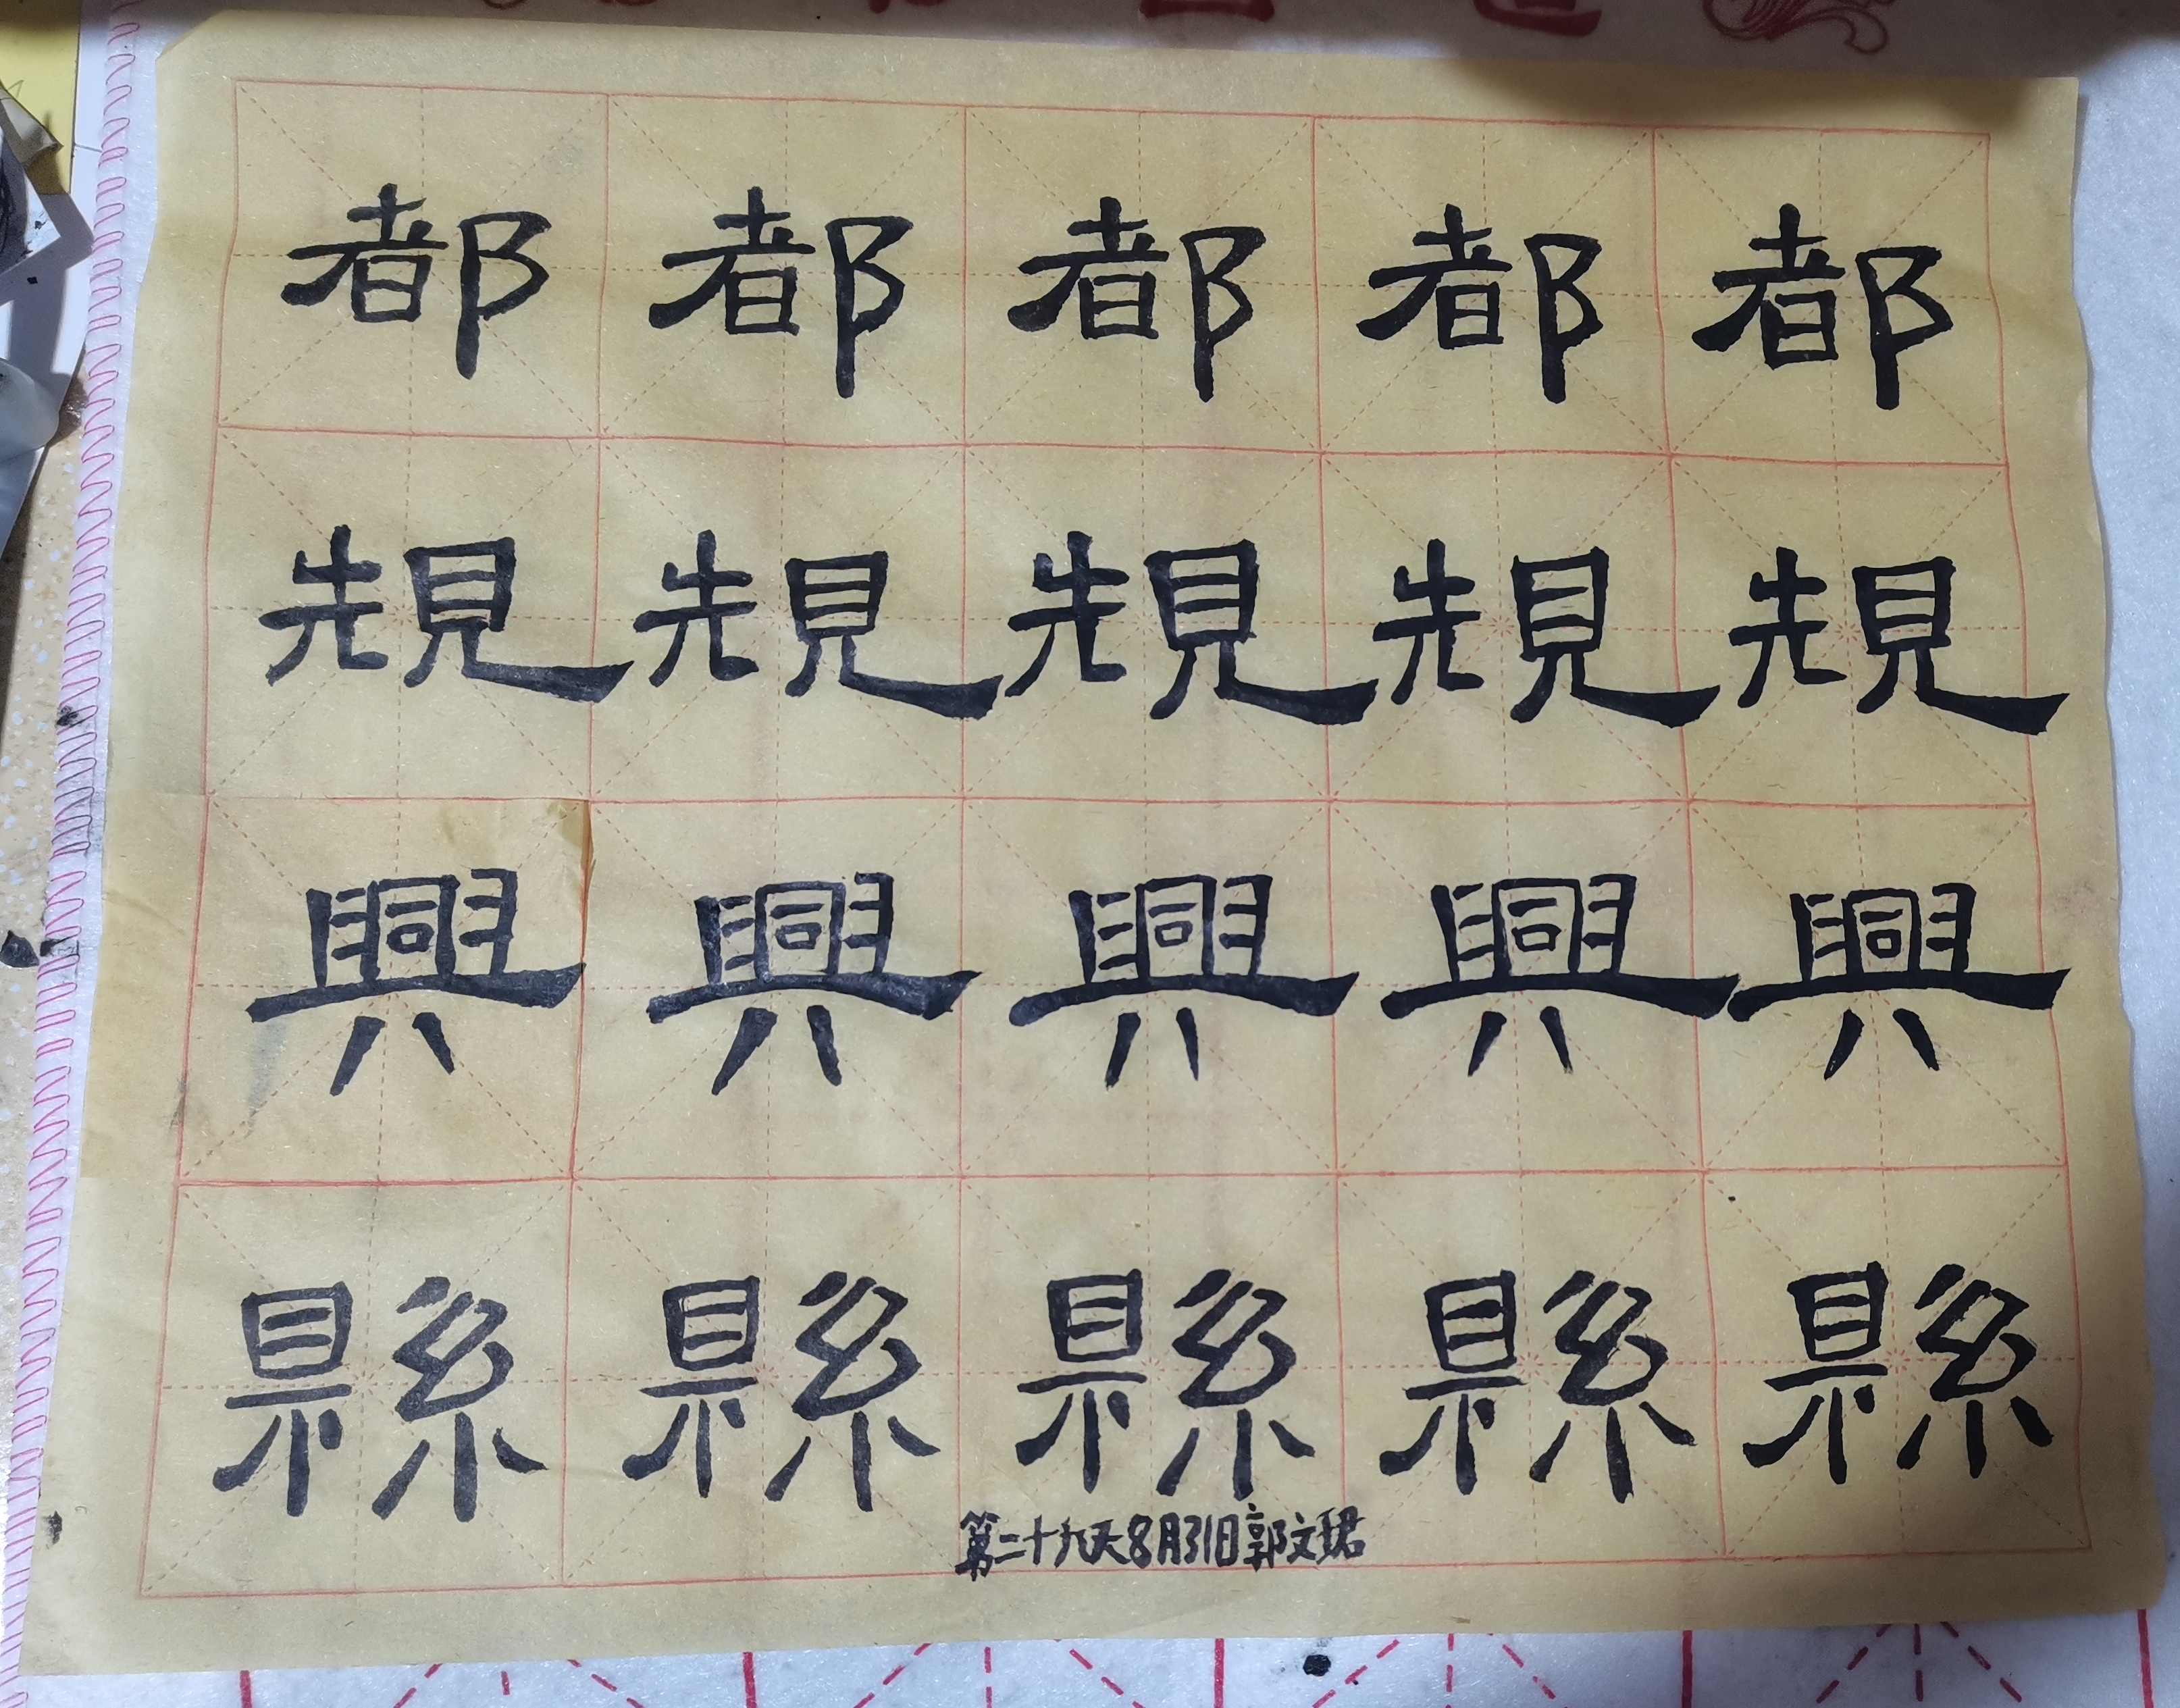 都都都都都
規規規規規
興興興興興
縣縣縣縣縣
第二十九天8月31日郭文珺